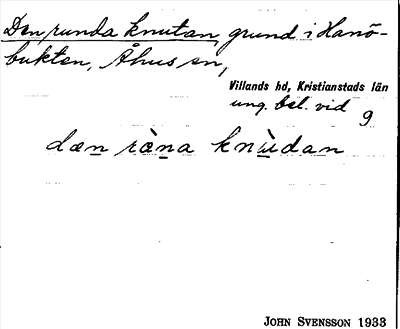 Den runda knutan, grund i Hanö-
bukten, Åhus sn,
Villands hd, Kristianstads län
ung. bel. vid 9
dæn ràna knùdan
JOHN SVENSSON 1933